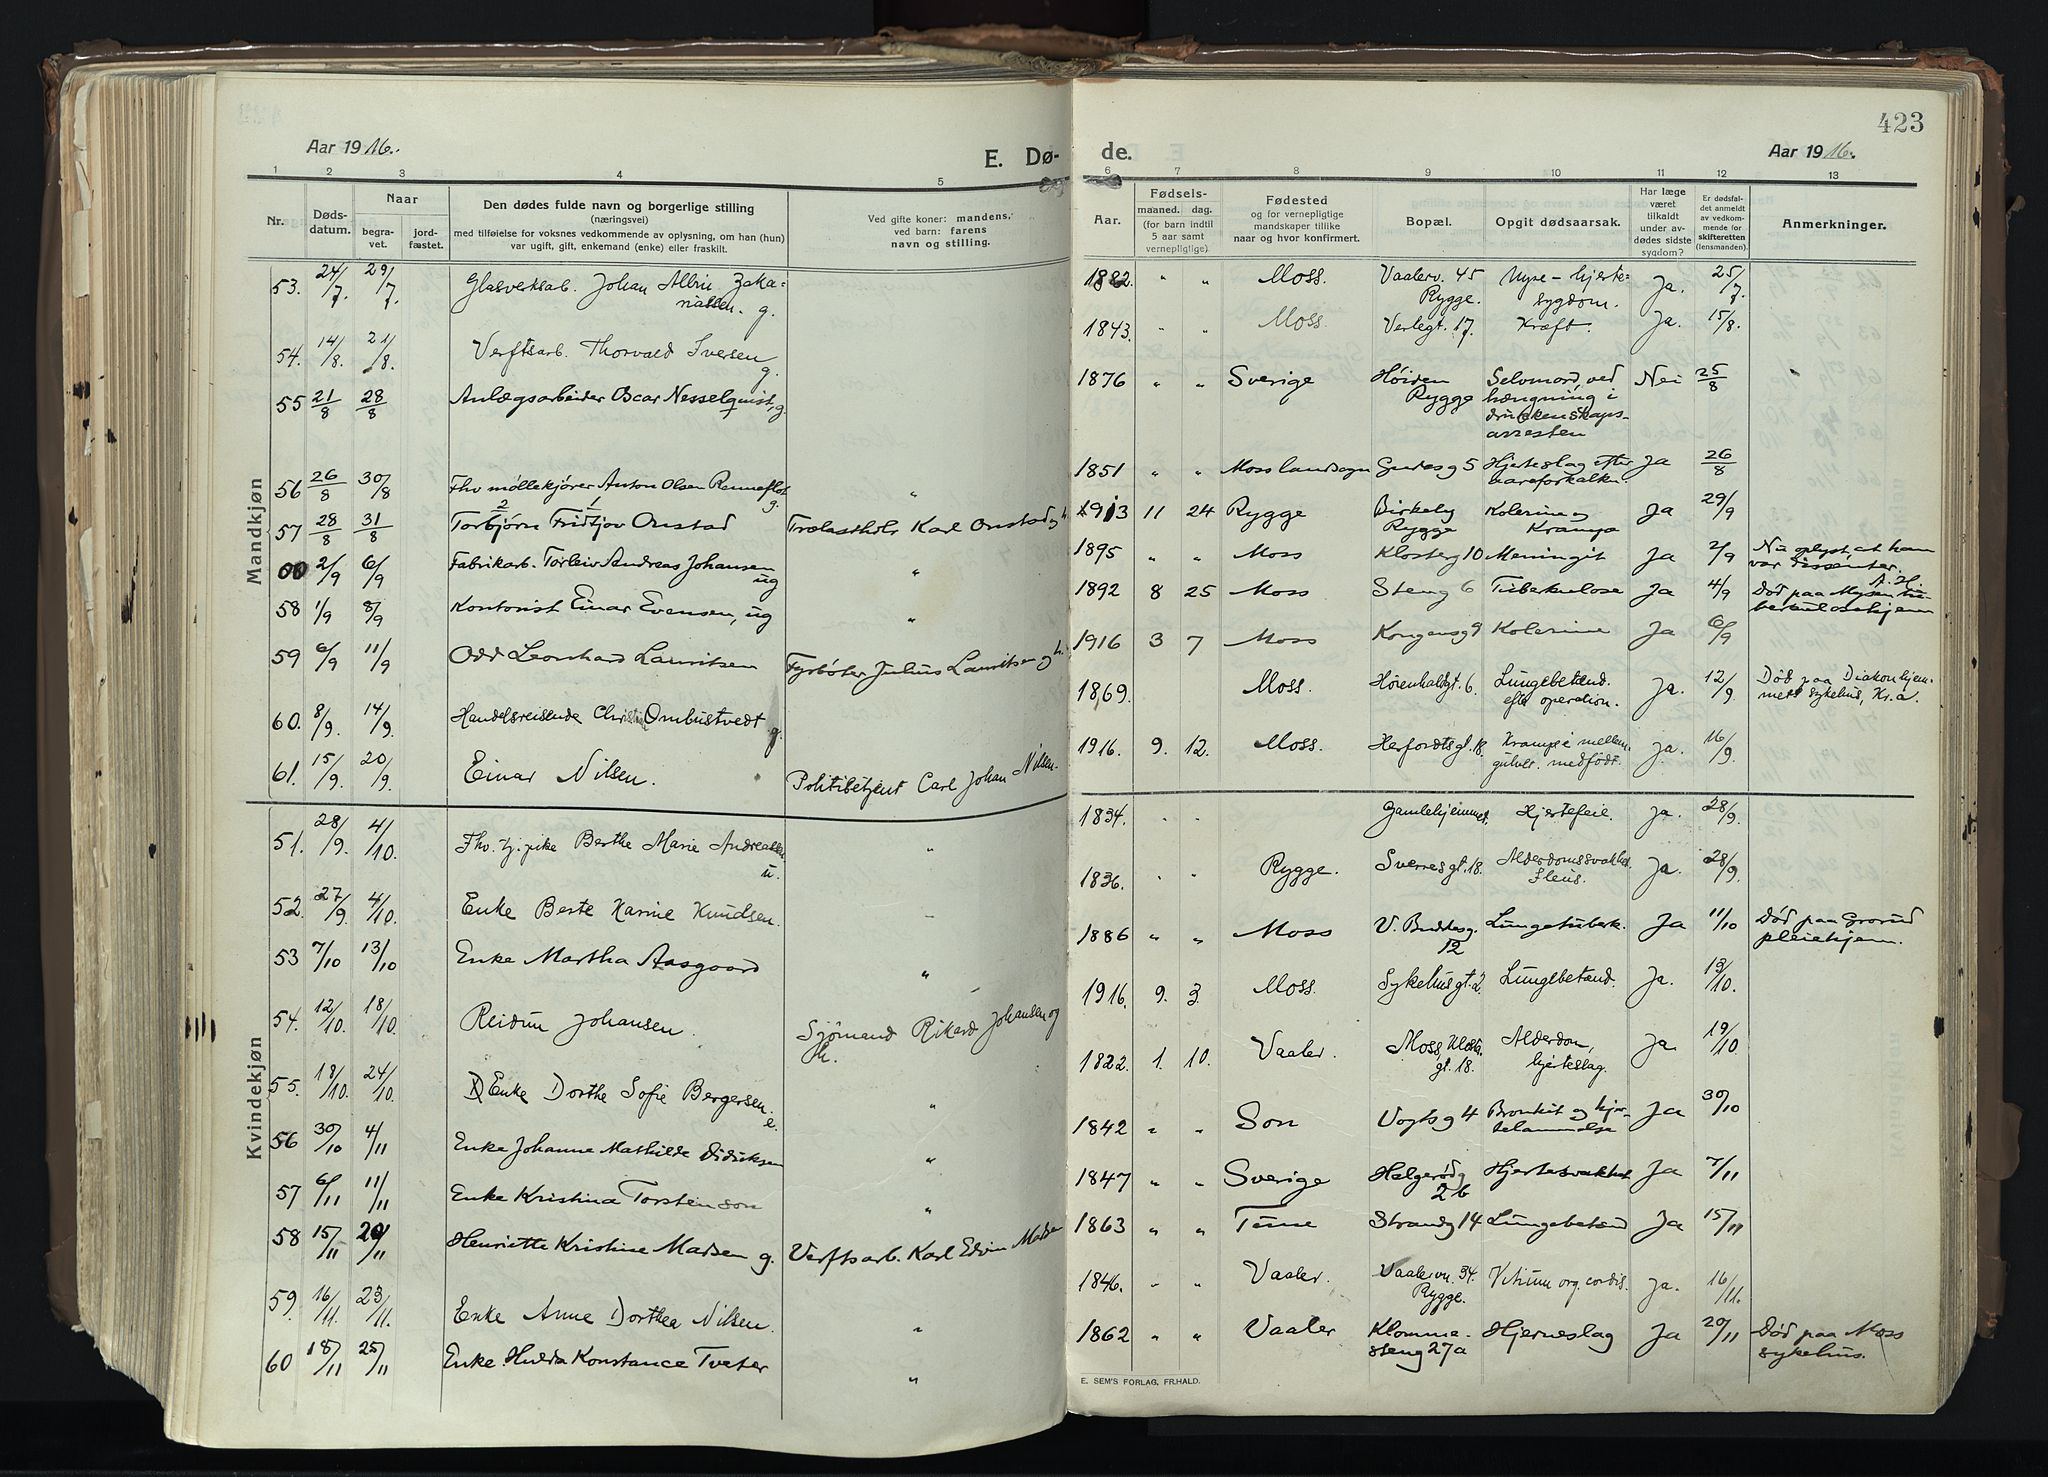 423
Aar 1916.
E. Dø-
de.
Aar 1916.
1 2 3 4 5 6 7 8 9 10 11 12 13
Nr.
Døds-
datum.
Naar
begra-
vet.
jord-
fæstet.
Den dødes fulde navn og borgerlige stilling
(næringsvei)
med tilføielse for voksnes vedkommende av oplysning, om han (hun)
var ugift, gift, enkemand (enke) eller fraskilt.
Ved gifte koner: mandens,
ved barn: farens
navn og stilling.
Aar.
Fødsels-
maaned. dag.
(for barn indtil
5 aar samt
vernepligtige)
Fødested
og for vernepligtige
mandskaper tillike
naar og hvor konfirmert.
Bopæl.
Opgit dødsaarsak.
Har læge
været
tilkaldt
under av-
dødes sidste
sygdom?
Er dødsfal-
det anmeldt
av vedkom-
mende for
skifteretten
(lensmanden).
Anmerkninger.
Mandkjøn
53. 24/7. 29/7. Glasverksab. Johan Albin Zaka=
riassen. g.
1882. " " Moss. Vaalerv. 45
Rygge. Nyre- hjerte=
sygdom. Ja. 25/7.
54. 14/8. 21/8. Verftsarb. Thorvald Iversen
g.
1843. " " Moss. Verlegt. 17. Kræft. Ja. 15/8.
55 21/8 28/8 Anlægsarbeider Oscar Nesselquist, g.
1876 " " Sverige Høiden
Rygge Selvmord, ved
hængning i
drukkenskaps-
arresten Nei 25/8
56 26/8 30/8 Fhv møllekjører Anton Olsen Renneflot
g. "
1851 " " Moss landsogn Gudes g 5 Hjerteslag efter
aareforkalkn. Ja 26/8
57 28/8 31/8 Torbjørn Fridtjov Onstad Trælasthdlr Karl Onstad og h.
1913 11 24 Rygge Birkely
Rygge Kolerine og
Krampe Ja 29/9
00 2/9 6/9 Fabrikarb. Torleiv Andreas Johansen
ug "
1895 " " Moss Klosterg 10 Meningit Ja 2/9 Nu oplyst, at han
var dissenter.
A. H.
58 1/9 8/9 Kontorist Einar Evensen, ug "
1892 8 25 Moss Steng 6 Tuberkulose Ja 4/9 Død paa Mysen tu-
berkulosehjem
59 6/9 11/9 Odd Leonhard Lauritsen Fyrbøter Julius Lauritsen og h.
1916 3 7 Moss Kongensg 9 Kolerine Ja 6/9
60. 8/9. 14/9. Handelsreisende Christian Ombustvedt g.
1869. Moss. Lungebetænd.
efter operation. Ja. 12/9. Død paa Diakonhjem-
mets sykehus, Kr.a.
61. 15/9. 20/9. Einar Nilsen. Politibetjent Carl Johan Nilsen.
1916. 9. 12. Moss. Herfordtsgt. 18. Krampe i mellem-
gulvet. medfødt. Ja. 16/9.
Kvindekjøn
51. 28/9. 4/10. Fhv. tj. pike Berthe Marie Andreassen
u. "
1834. " " Gamlehjemmet. Hjertefeil. Ja. 28/9.
52. 27/9. 4/10. Enke Berte Karine Knudsen. "
1836. " " Rygge. Sverresgt. 18. Alderdomssvakhet.
Ileus. Ja. 28/9.
53 7/10 13/10 Enke Martha Aasgaard "
1886 " " Moss V. Buddesg.
12 Lungetuberk. Ja 11/10 Død paa Grorud
pleiehjem.
54. 12/10. 18/10. Reidun Johansen. Sjømand Rikard Johansen og
h.
1916. 9. 3. Moss. Sykehusgt. 2. Lungebetænd. Ja. 13/10.
55. 18/10. 24/10. Enke Dorthe Sofie Bergersen.
e. "
1822. 1. 10. Vaaler. Moss, Kloster
gt. 18. Alderdom,
hjerteslag. Ja. 19/10
56 30/10 4/11 Enke Johanne Mathilde Didriksen "
1842 " " Son Vogtsg 4 Bronkit og hjer-
telammelse Ja 30/10
57 6/11 11/11 Enke Kristina Torstenson "
1847 " " Sverige Helgerødg
2b Hjertesvakhet Ja 7/11
58 15/11 20/11 Henriette Kristine Madsen g. Verftsarb. Karl Edvin Madsen
1863 " " Tune Strandg 14 Lungebetænd Ja 15/11
59. 16/11. 23/11. Enke Anne Dorthea Nilsen. "
1846. " " Vaaler. Vaalervn. 34.
Rygge. Vitium org. cordis. Ja. 16/11.
60 18/11 25/11 Enke Hulda Konstance Tveter "
1862 " " Vaaler Klomme-
steng 27a Hjerneslag Ja 20/11 Død paa Moss
sykehus.
E. SEM'S FORLAG, FR.HALD.